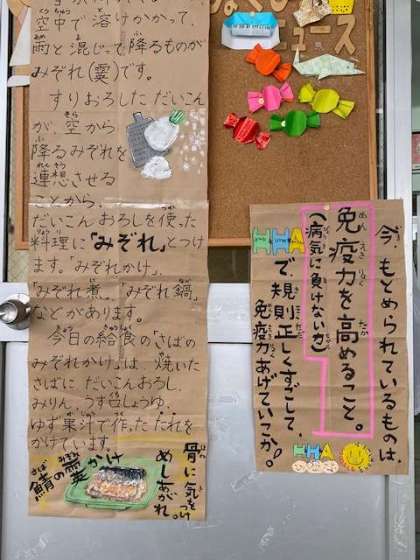 空中で溶けかかって、
雨と混じって降るものが
みぞれ(霙)です。
すりおろしただいこん
が、空から
降るみぞれを
連想させる
ことから、
だいこんおろしを使った
料理に「みぞれ」とつけ
ます。「みぞれかけ」、
「みぞれ煮」、「みぞれ鍋」
などがあります。
今日の給食の「さばの
みぞれかけ」は、焼いた
さばに、だいこんおろし、
みりん、うす口しょうゆ、
ゆず果汁で作ったたれを
かけています。
骨に気をつけ
めしあがれ。
鯖の霙かけ
ニュース
今、もとめられているものは、
免疫力を高めること。
(病気に負けない力)
HHAで、規則正しくすごして、
免疫力あげていこか。
HHA